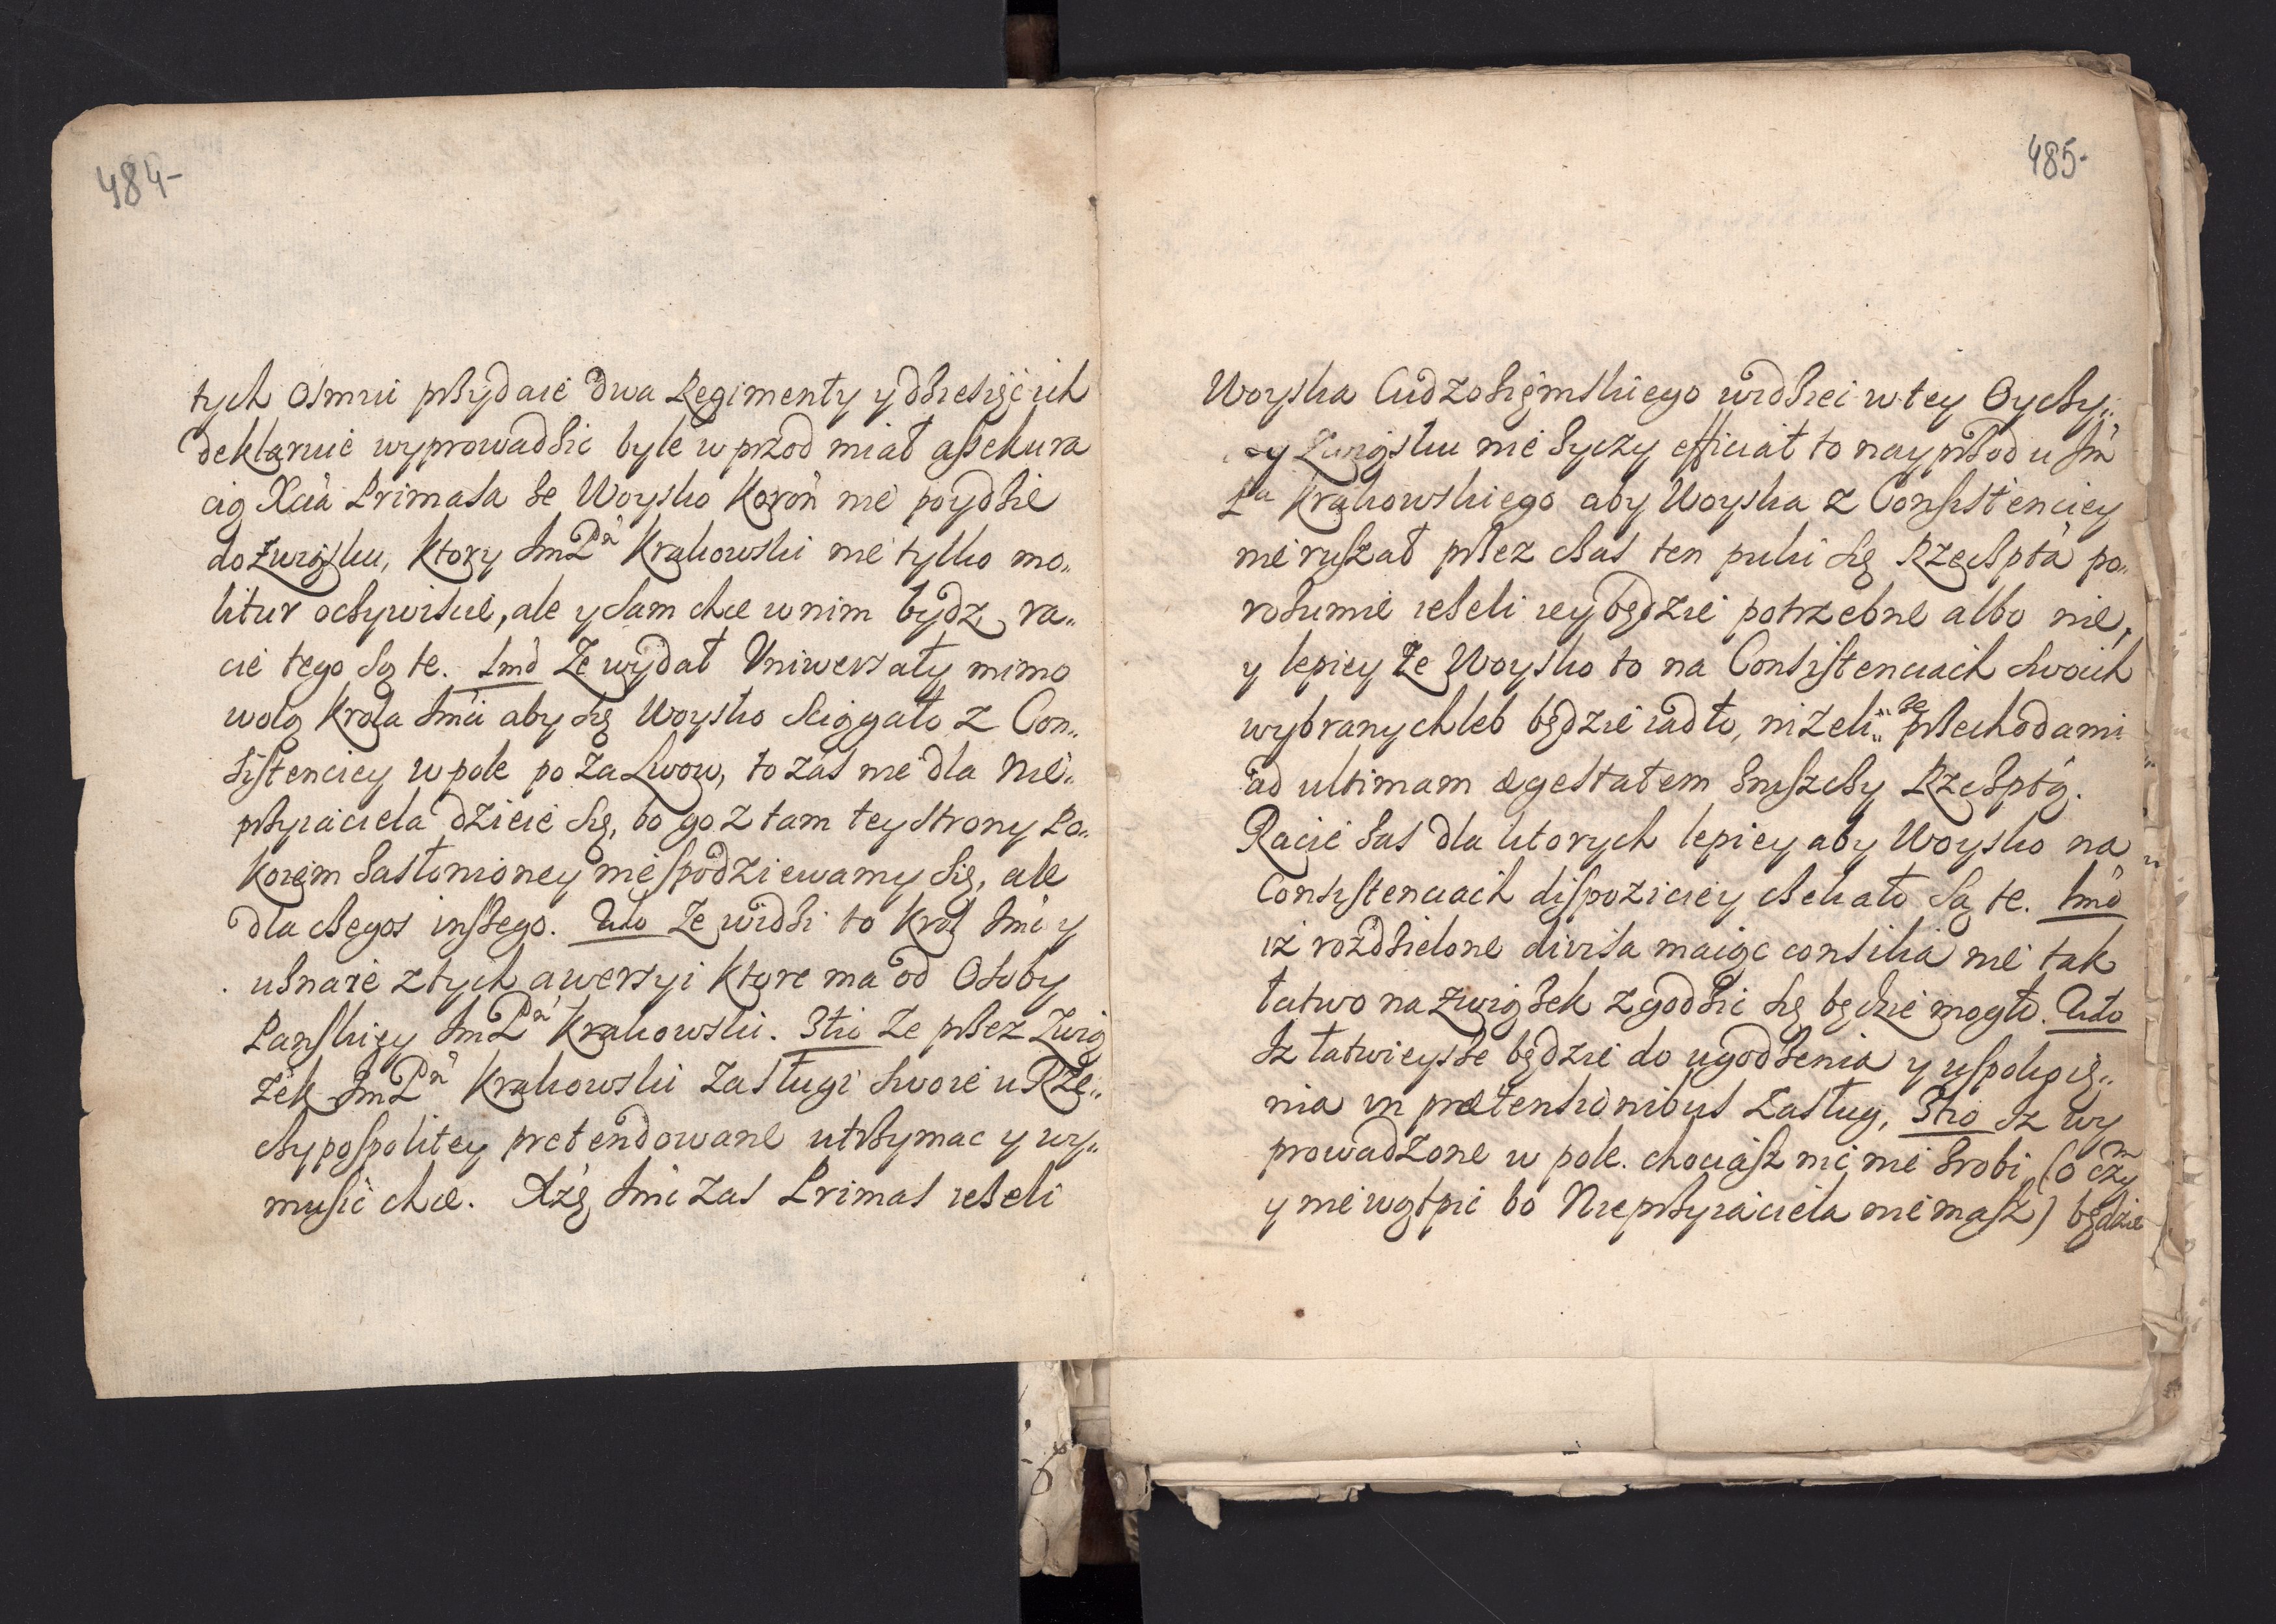 484-
tych osmiu przydaie dwa Regimenty y dziesięć ich
deklaruie wyprowadzic byle wprzod miał assekura
cią Xcia Primasa ze Woysko Koron nie poydzie
do Związku, ktory JmPan Krakowski nie tylko mo„
litur oczywiscie, ale y sam chce w nim bydz, ra„
cie tego są te. Imo Ze wydał Uniwersały mimo
wolą Krola Jmci aby się Woysko sciągało z Con„
sistenciey w pole po za Lwow, to zas nie dla Nie„
przyiaciela dzieie się, bo go z tam tey strony Po„
koiem zasłonioney nie spodziewamy się, ale
dla czegos inszego. 2do Ze widzi to Krol Jmc y
uznaie z tych awersyi ktore ma od Osoby
Panskiey JmPan Krakowski. 3tio Ze przez Zwią
zek JmPan Krakowski zasługi swoie u Rze„
czypospolitey pretendowane utrzymac y wy„
musić chce. Xżę Jmc zas Primas iezeli
485-
Woyska Cudzoziemskiego widziec w tey Oyczy„
zy Związku nie życzy efficiat to nayprzod u Jm
Pa Krakowskiego aby Woyska z Consistenciey
nie ruszał przez czas ten puki się Rzeczpta po„
rozumie iezeli iey będzie potrzebne albo nie,
y lepiey ze Woysko to na Consistenciach swoich
wybrany chleb będzie iadło, nizeli„ ze przechodami
ad ultimam egestatem zniszczy Rzczptą.
Racie zas dla ktorych lepiey aby Woysko na
Consistenciach dispoziciey czekało są te. Imo
iż rozdzielone divisa maiąc consilia nie tak
łatwo na Związek zgodzic się będzie mogło. 2do
Iz łatwieysze będzie do ugodzenia y uspokoie„
nia in prætensionibus Zasług, 3tio Iz wy
prowadzone w pole. chociasz nic nie zrobi (o czym
y nie wątpic bo Nieprzyiaciela nie masz) będzie